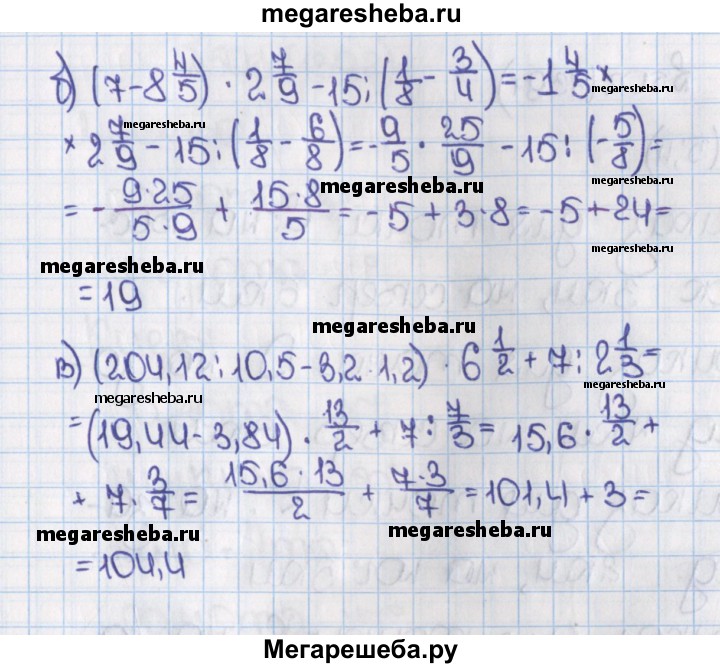 megaresheba.ru
б) (7 - 8 4/5) · 2 7/9 - 15 : (1/8 - 3/4) = -1 4/5 ×
megaresheba.ru
× 2 7/9 - 15 : (1/8 - 6/8) = - 9/5 · 25/9 - 15 : (- 5/8) =
megaresheba.ru megaresheba.ru
= - 9·25/5·9 + 15·8/5 = -5 + 3·8 = -5 + 24 =
megaresheba.ru
megaresheba.ru megaresheba.ru
= 19
megaresheba.ru
в) (204,12 : 10,5 - 3,2 · 1,2) · 6 1/2 + 7 : 2 1/3 =
megaresheba.ru megaresheba.ru
= (19,44 - 3,84) · 13/2 + 7 : 7/3 = 15,6 · 13/2 +
megaresheba.ru
+ 7 · 3/7 = 15,6 · 13/2 + 7·3/7 = 101,4 + 3 =
megaresheba.ru megaresheba.ru
= 104,4
Мегарешеба.ру